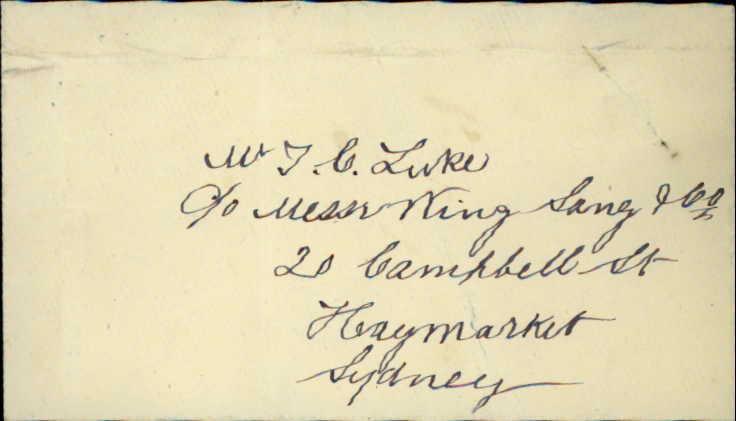 Mr T. C. Luke
C/o Messr Wing Sang & Co
20 Campbell St
Haymarket
Sydney